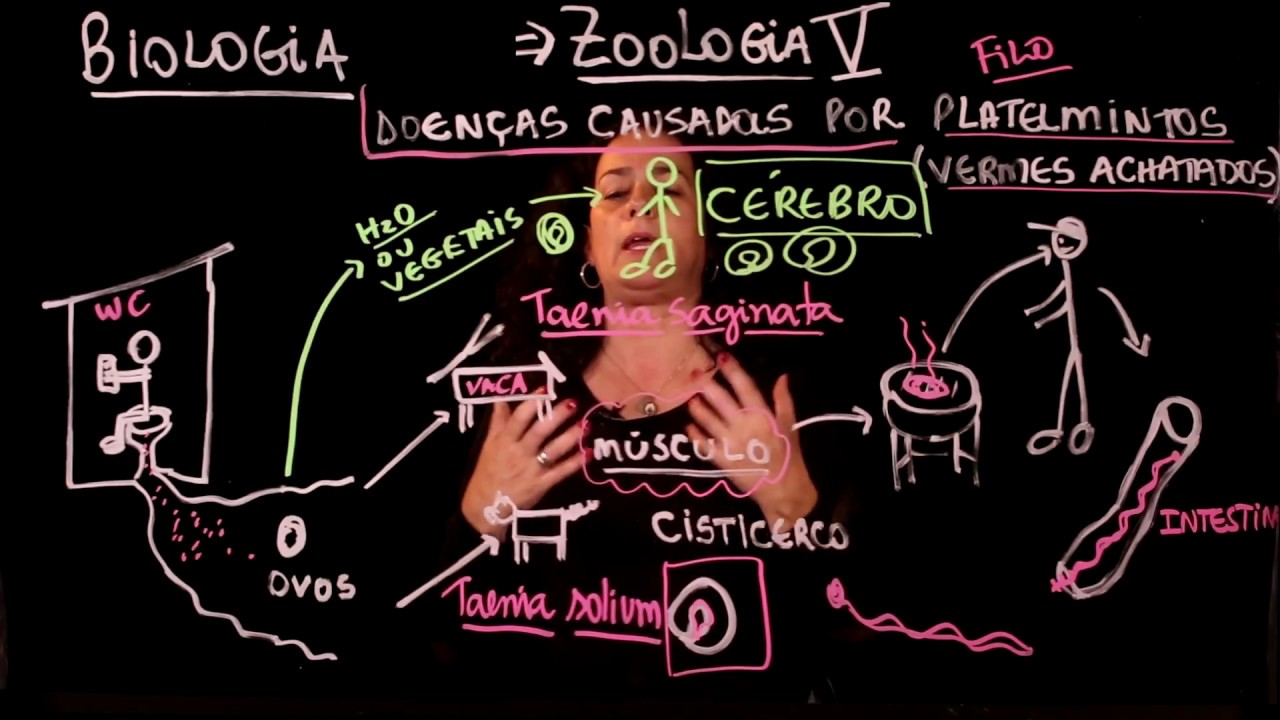 BIOLOGIA ⇒ ZOOLOGIA V
FILO
DOENÇAS CAUSADAS POR PLATELMINTOS
(VERMES ACHATADOS)
H2O
OU
VEGETAIS
CÉREBRO
WC
Taenia saginata
VACA
MÚSCULO
CISTICERCO
INTESTIN
OVOS
Taenia solium